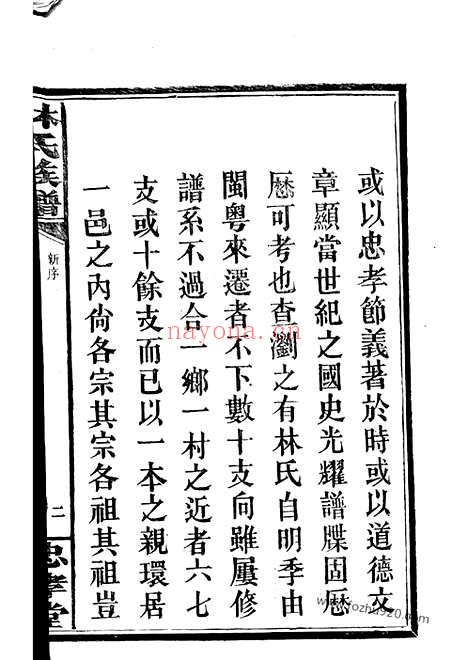 或以忠孝節義著於時或以道德文
章顯當世紀之國史光耀譜牒固歷
歷可考也查瀏之有林氏自明季由
閩粵來遷者不下數十支向雖屢修
譜系不過合一鄉一村之近者六七
支或十餘支而已以一本之親環居
一邑之內尙各宗其宗各祖其祖豈
林氏族譜
新序
二
忠孝堂
nayona.cn
www.fozhu920.com